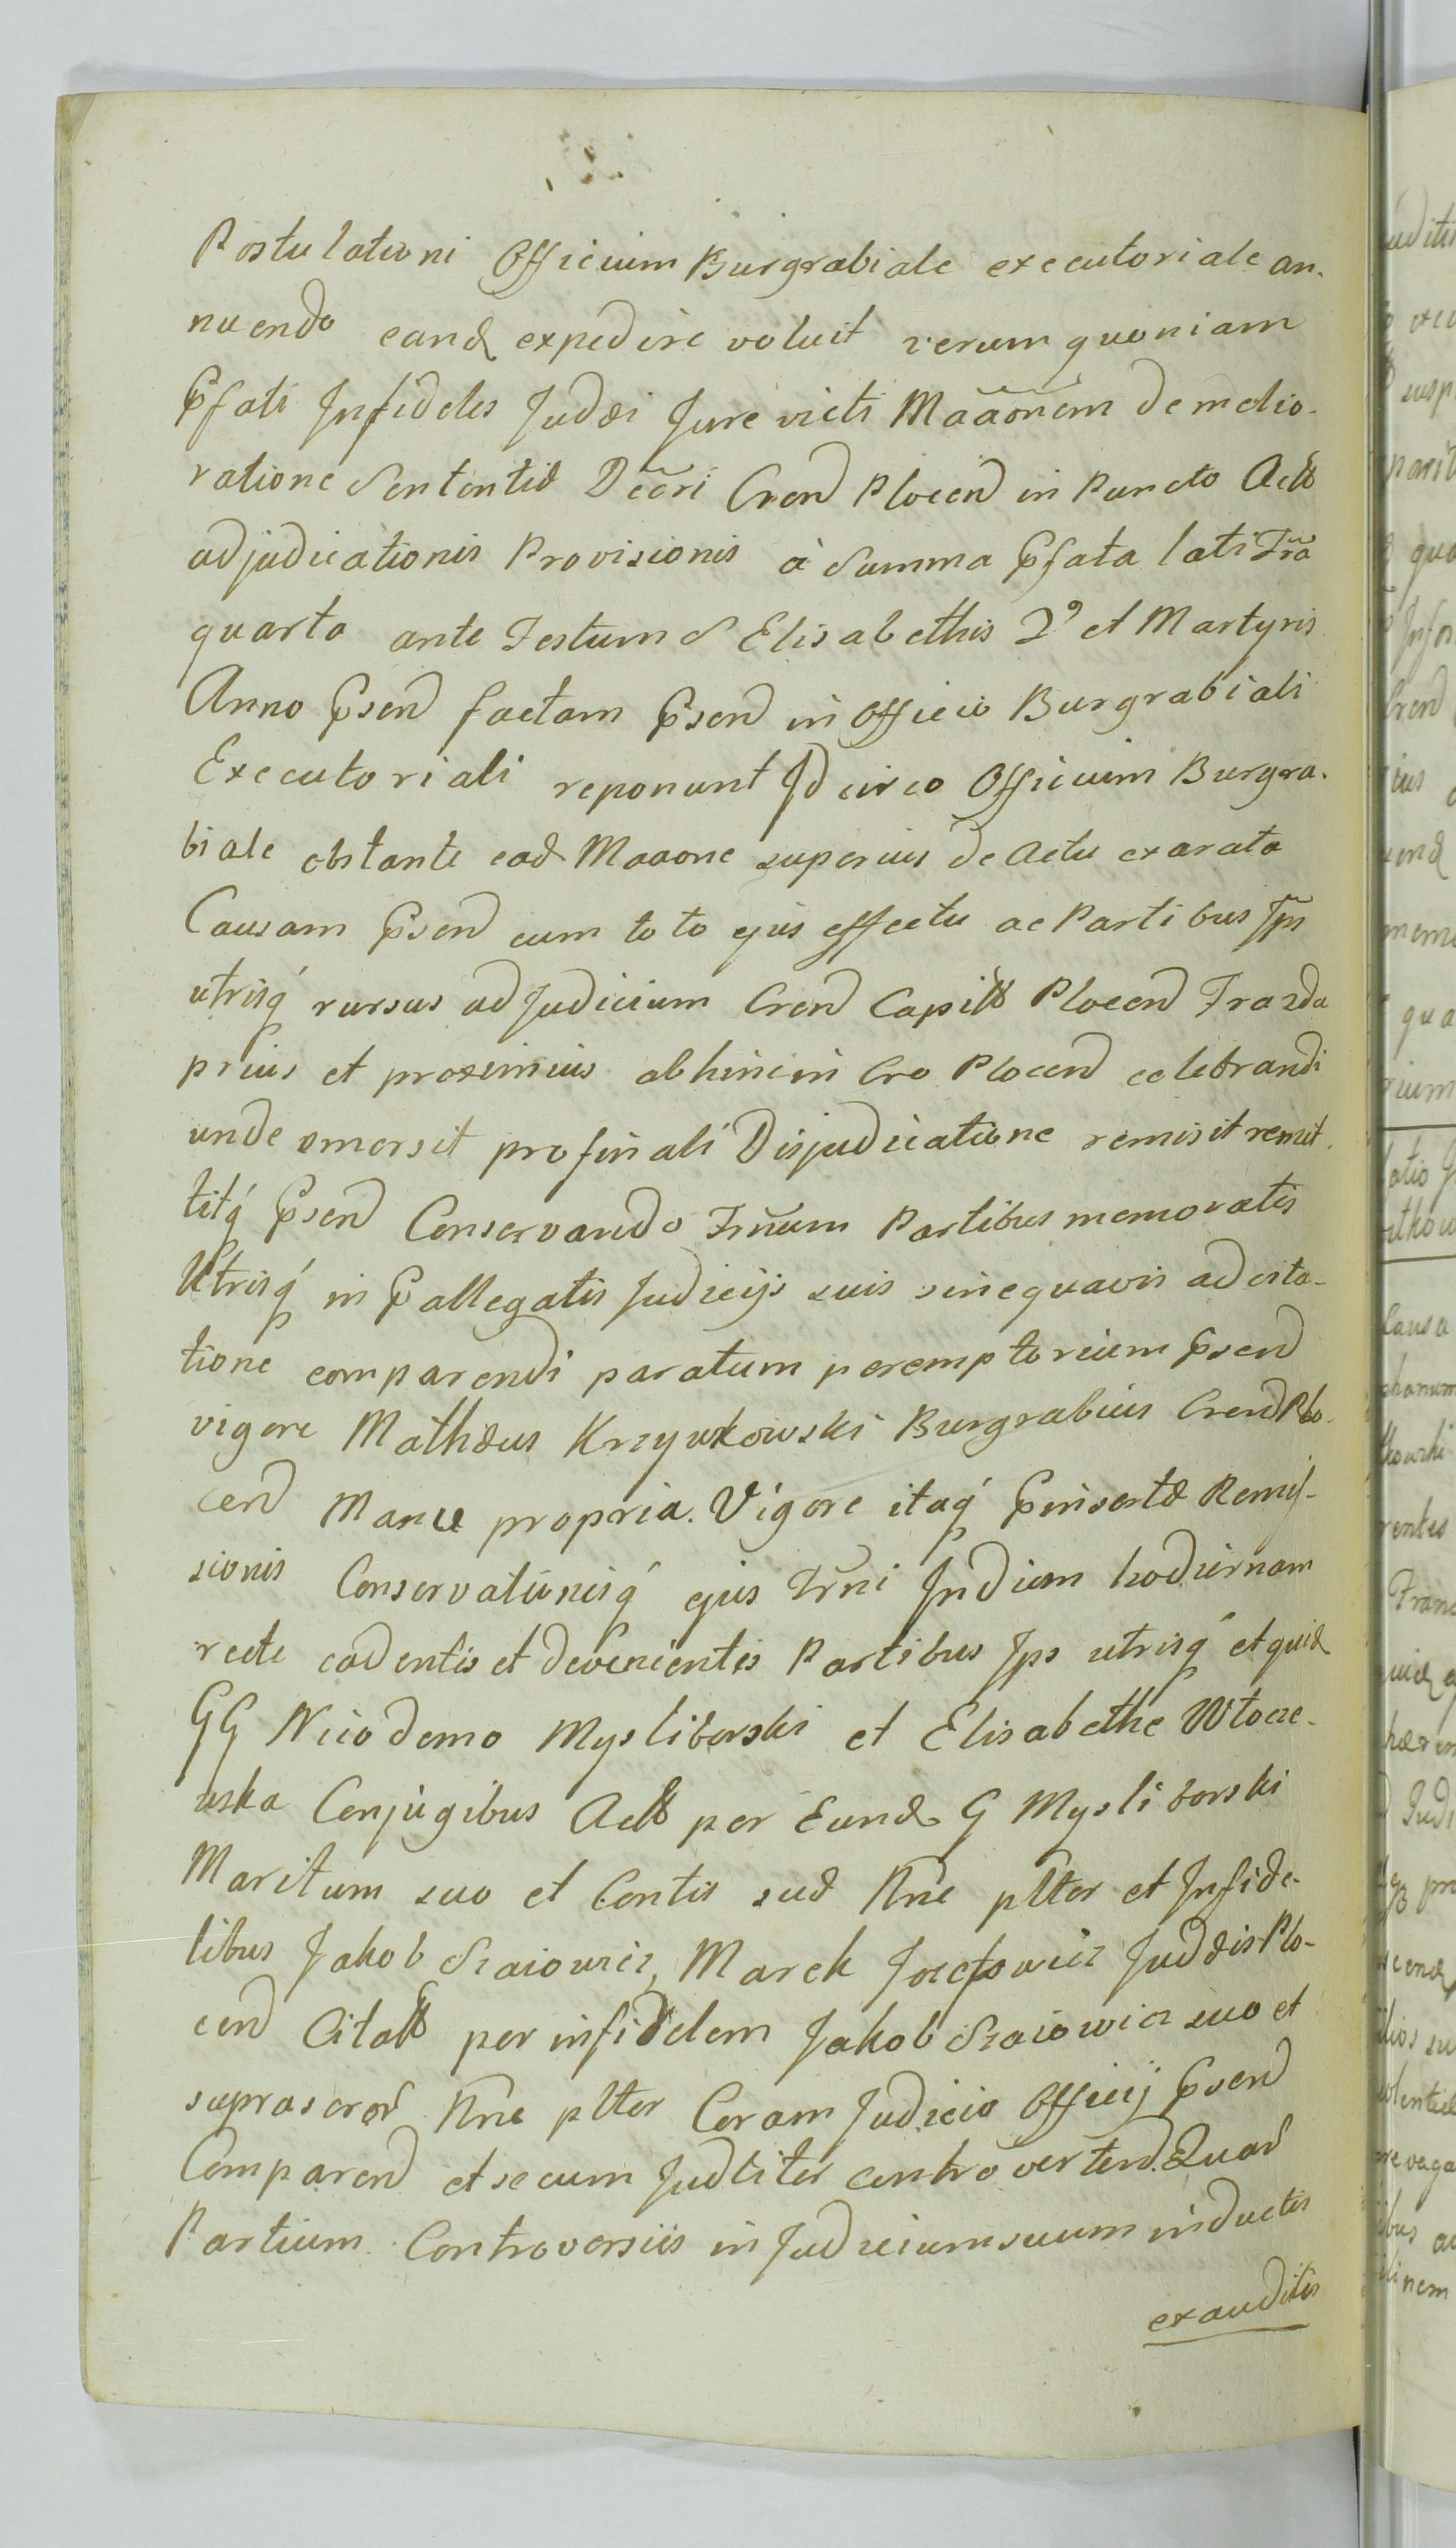 Postulationi Officium Burgrabiale executoriale an-
nuendo eand expedire voluit verum quoniam
Pfati Infideles Judæi Jure victi Mãaonem de melio-
ratione Sententiæ Decri Crend Plocen in Puncto Act
adjudicationis Provisionis à Summa Pfata lati Fria
quarta ante Festum S Elisabethis V et Martyris
Anno Psend factam Psend in Officio Burgrabiali
Executoriali reponunt Idcirco Officium Burgra-
biale obstante ead Maaone superius de Actu exarata
Causam Psend cum toto ejus effectu ac Partibus Ips
utrisq́ rursus ad Judicium Crend Capit Plocend Fra 2da
prius et proximius abhinc in Cro Plocend celebrandi
unde emersit pro finali Disjudicatione remisit remit-
titq́ Psend Conservando Trnum Partibus memoratis
Utrisq́ in Pallegatis Judicijs suis sine quavis adcita-
tione comparendi paratum peremptorium Psend
vigore Mathæus Krzywkowski Burgrabius Crend Plo-
cend Manu propria. Vigore itaq́ Pinsertæ Remis-
sionis Conservationisq́ ejus Trni In diem hodiernam
recte cadentis et devenientis Partibus Ips utrisq́ et quid
GG Nicodemo Mysliborski et Elisabethe Wtocze-
wska Conjugibus Act per Eund G Mysliborski
Maritum suo et Contis suæ Nne pltter et Infide-
libus Jakob Szaiowicz, Marek Joczfowicz Judæis Plo-
cend Citat per infidelem Jakob Szaiowicz suo et
suprascror Nne pltter Coram Judicio Officij Psend
Comparend et secum Judtiter controvertend. Quar
Partium Controversiis in Judicium suum inductis
exauditis